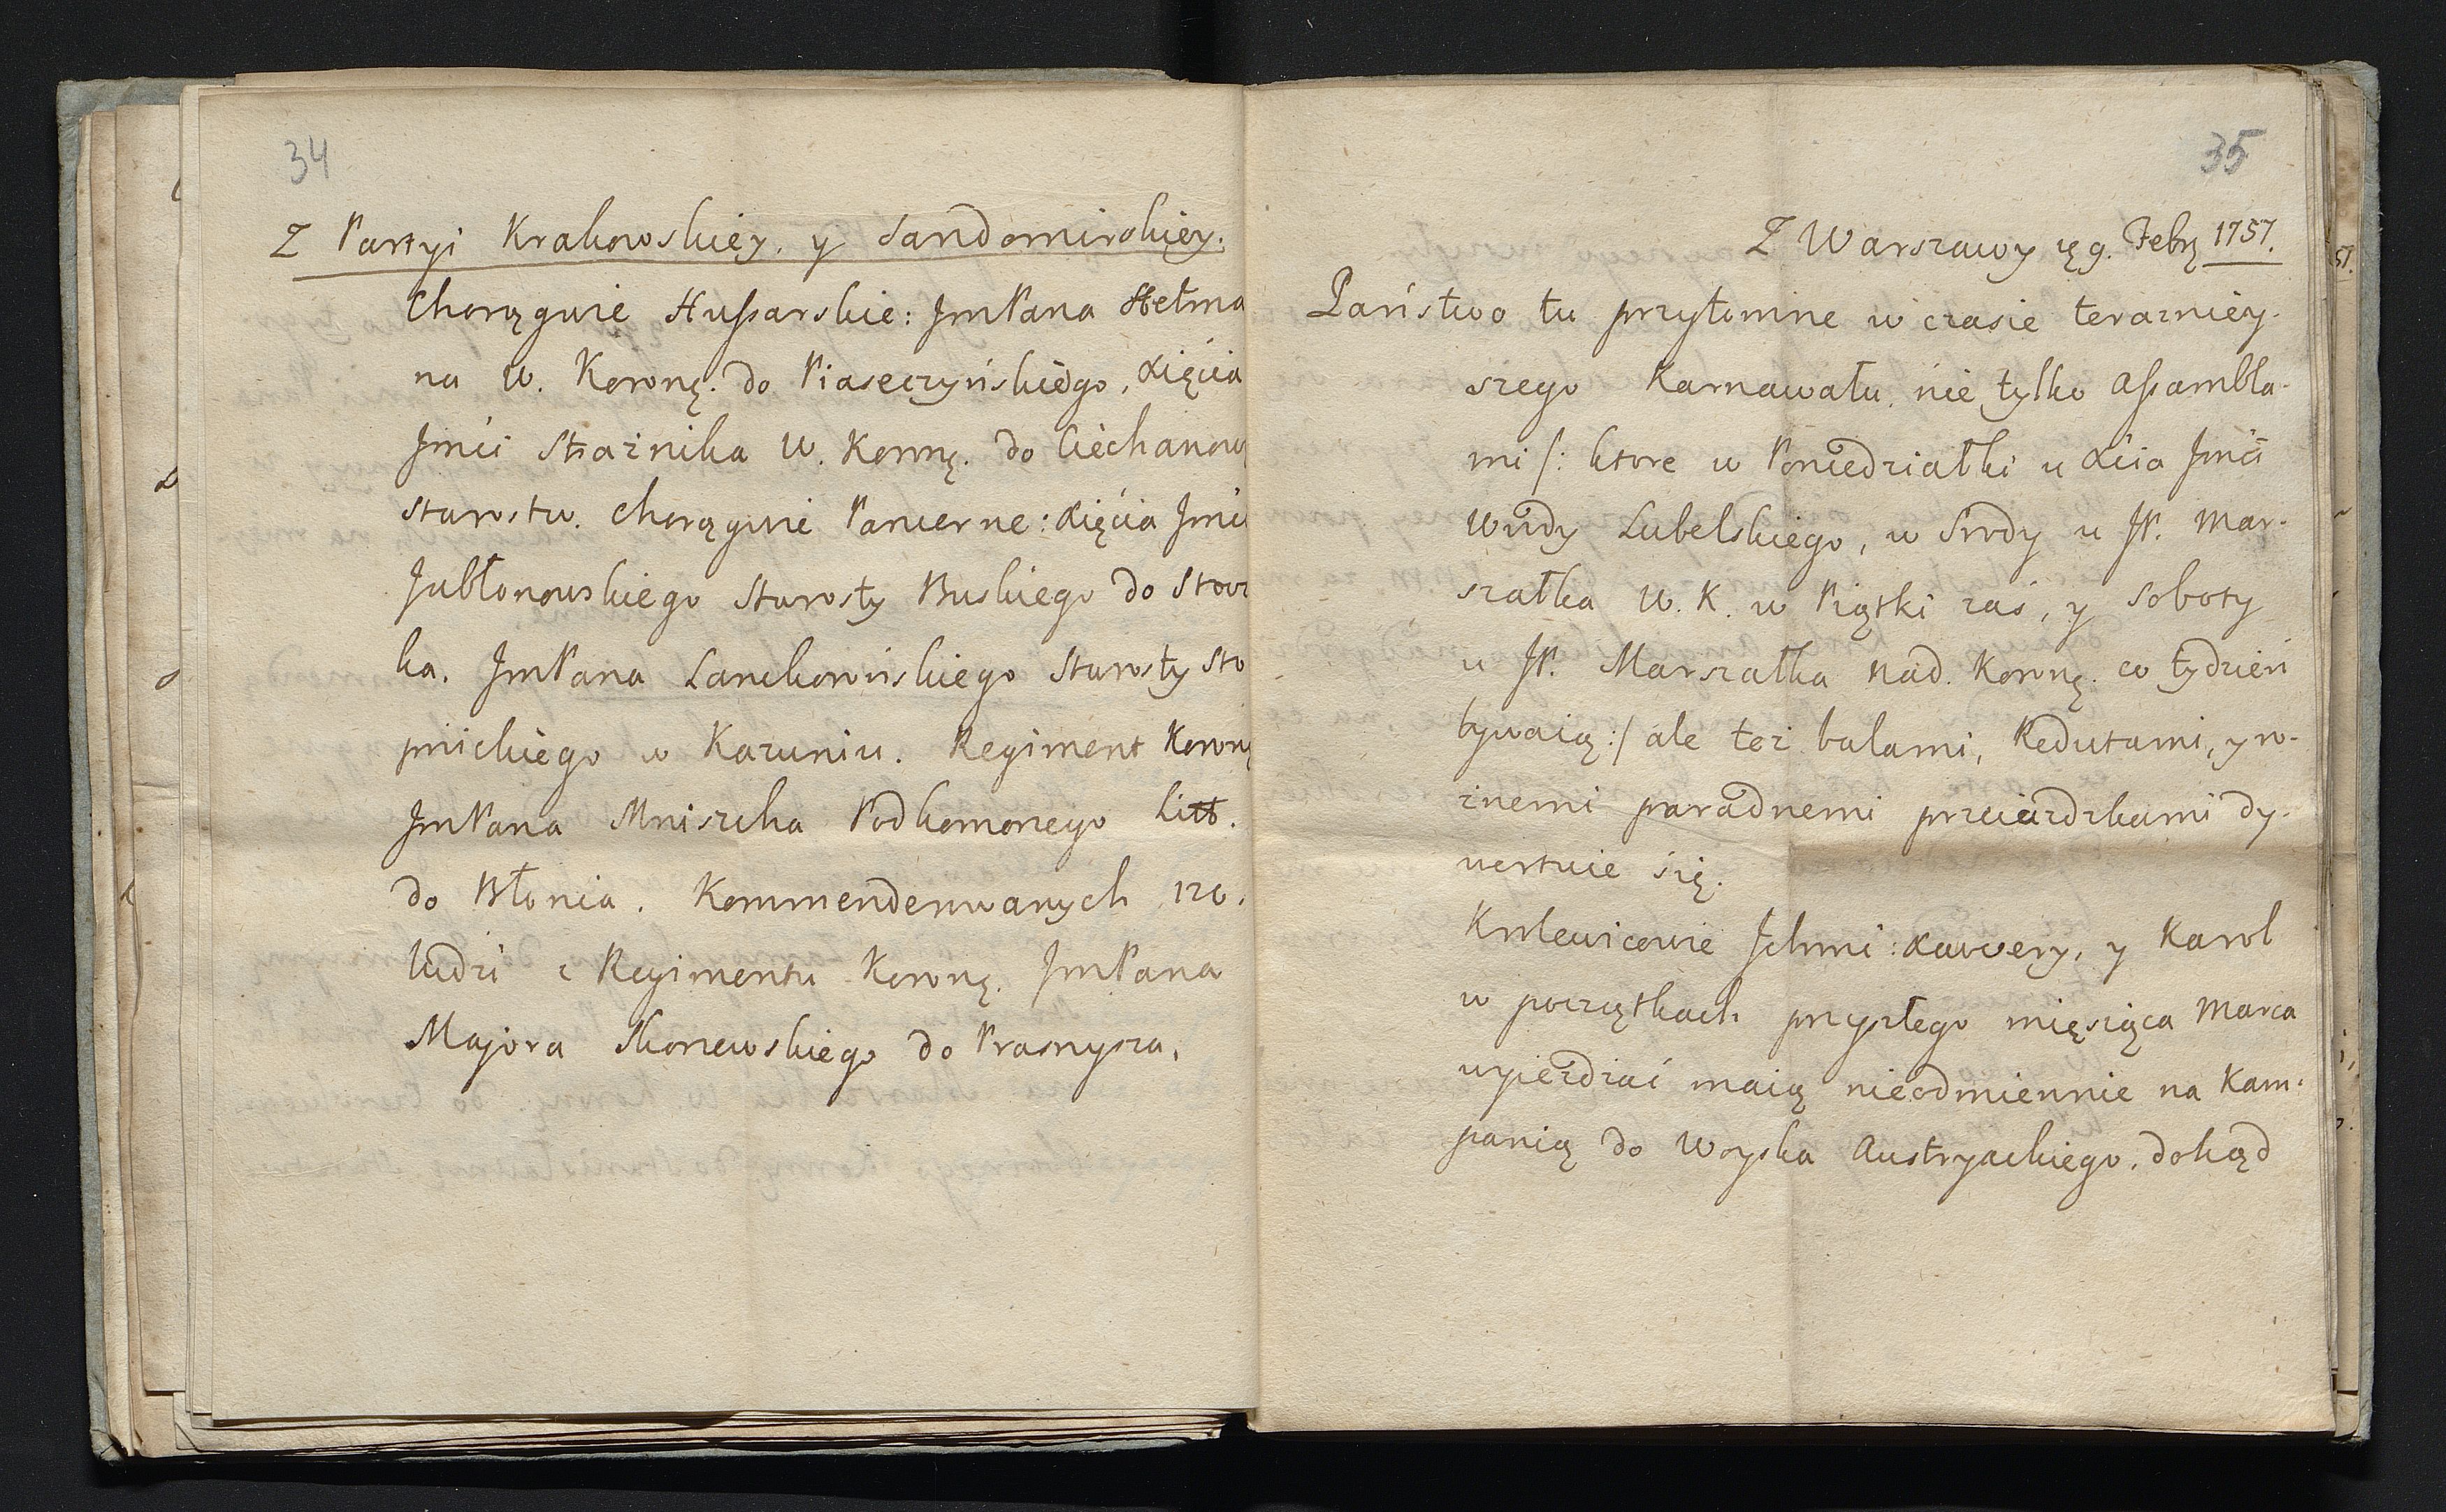 34
Z Partyi Krakowskiey, y Sandomirskiey.
Chorągwie Hussarskie: JmPana Hetma
na W. Koronę. do Piaseczyńskiego, Xięcia
Jmći Strażnika W. Koronę. do Ciechanow
Starostw. Chorągwie Pancerne: Xięcia Jmći
Jabłonowskiego Starosty Buskiego do Stocz
ka. JmPana Lanckorońskiego Starosty Sto
pnickiego w Kazuniu. Regiment Koronę
JmPana Mniszcha Podkomorzego Litt.
do Błonia. Kommenderowanych 120.
ludzi z Regimentu Koronę. JmPana
Majora Skorewskiego do Prasnysza.
35
Z Warszawy 9. Febrę 1757.
Państwo tu przytomne w czasie terazniey-
szego Karnawału, nie tylko assambla-
mi /: ktore w Poniedziałki u Xcia Jmći
Wwdy Lubelskiego, w Srody u JP. Mar-
szałka W. K. w Piątki zaś, y Soboty
u JP. Marszałka Nad. Koronę. co tydzień
bywaią :/ ale też balami, Redutami, y ro-
żnemi paradnemi przeiazdzkami dy-
wertuie się.
Krolewicowie Jchmć: Xawery, y Karol
w początkach przyszłego mięsiąca Marca
wyieżdżać maią nieodmiennie na Kam-
panią do Woyska Austryackiego, dokąd